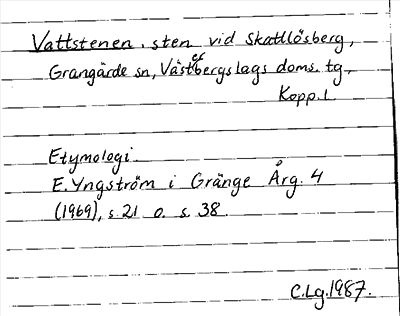 Vattstenen, sten vid Skattlösberg,
Grangärde sn, Västerbergslags doms. tg.,
Kopp. l.
Etymologi
E. Yngström i Gränge Årg. 4
(1969), s. 21 o. s. 38.
C.Lg. 1987.